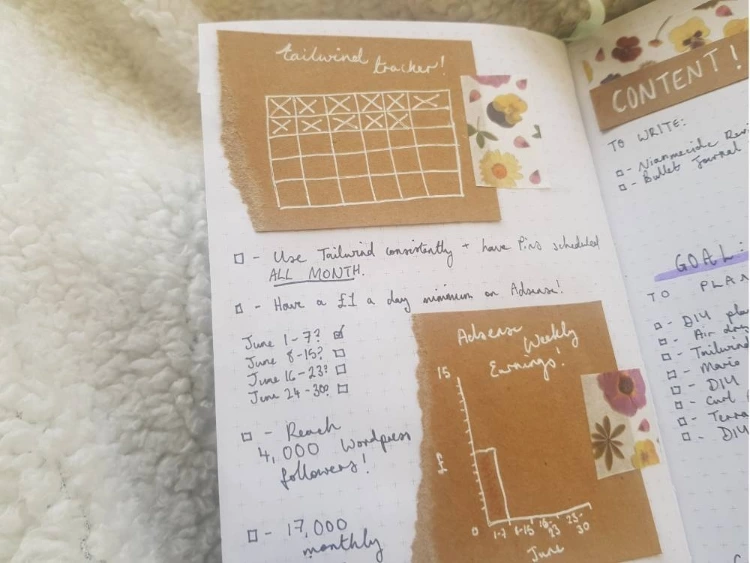 tailwind
tracker!
□ - Use Tailwind consistently + have Pins scheduled
ALL MONTH.
□ - Have a £1 a day minimum on Adsense!
June 1-7? ☑
June 8-15? □
June 16-23? □
June 24-30? □
□ - Reach
4,000 Wordpress
followers!
□ - 17,000
monthly
Adsense Weekly
Earnings!
15
0
1-7 8-15 16-23 23-30
June
CONTENT!
TO WRITE:
□ - Nianmecide
□ - Bullet Journal
GOAL
TO PLAN
□ - DIY
□ - Air
□ - Tailwind
□ - Mario
□ - DIY
□ - Curl
□ -
□ - DIY